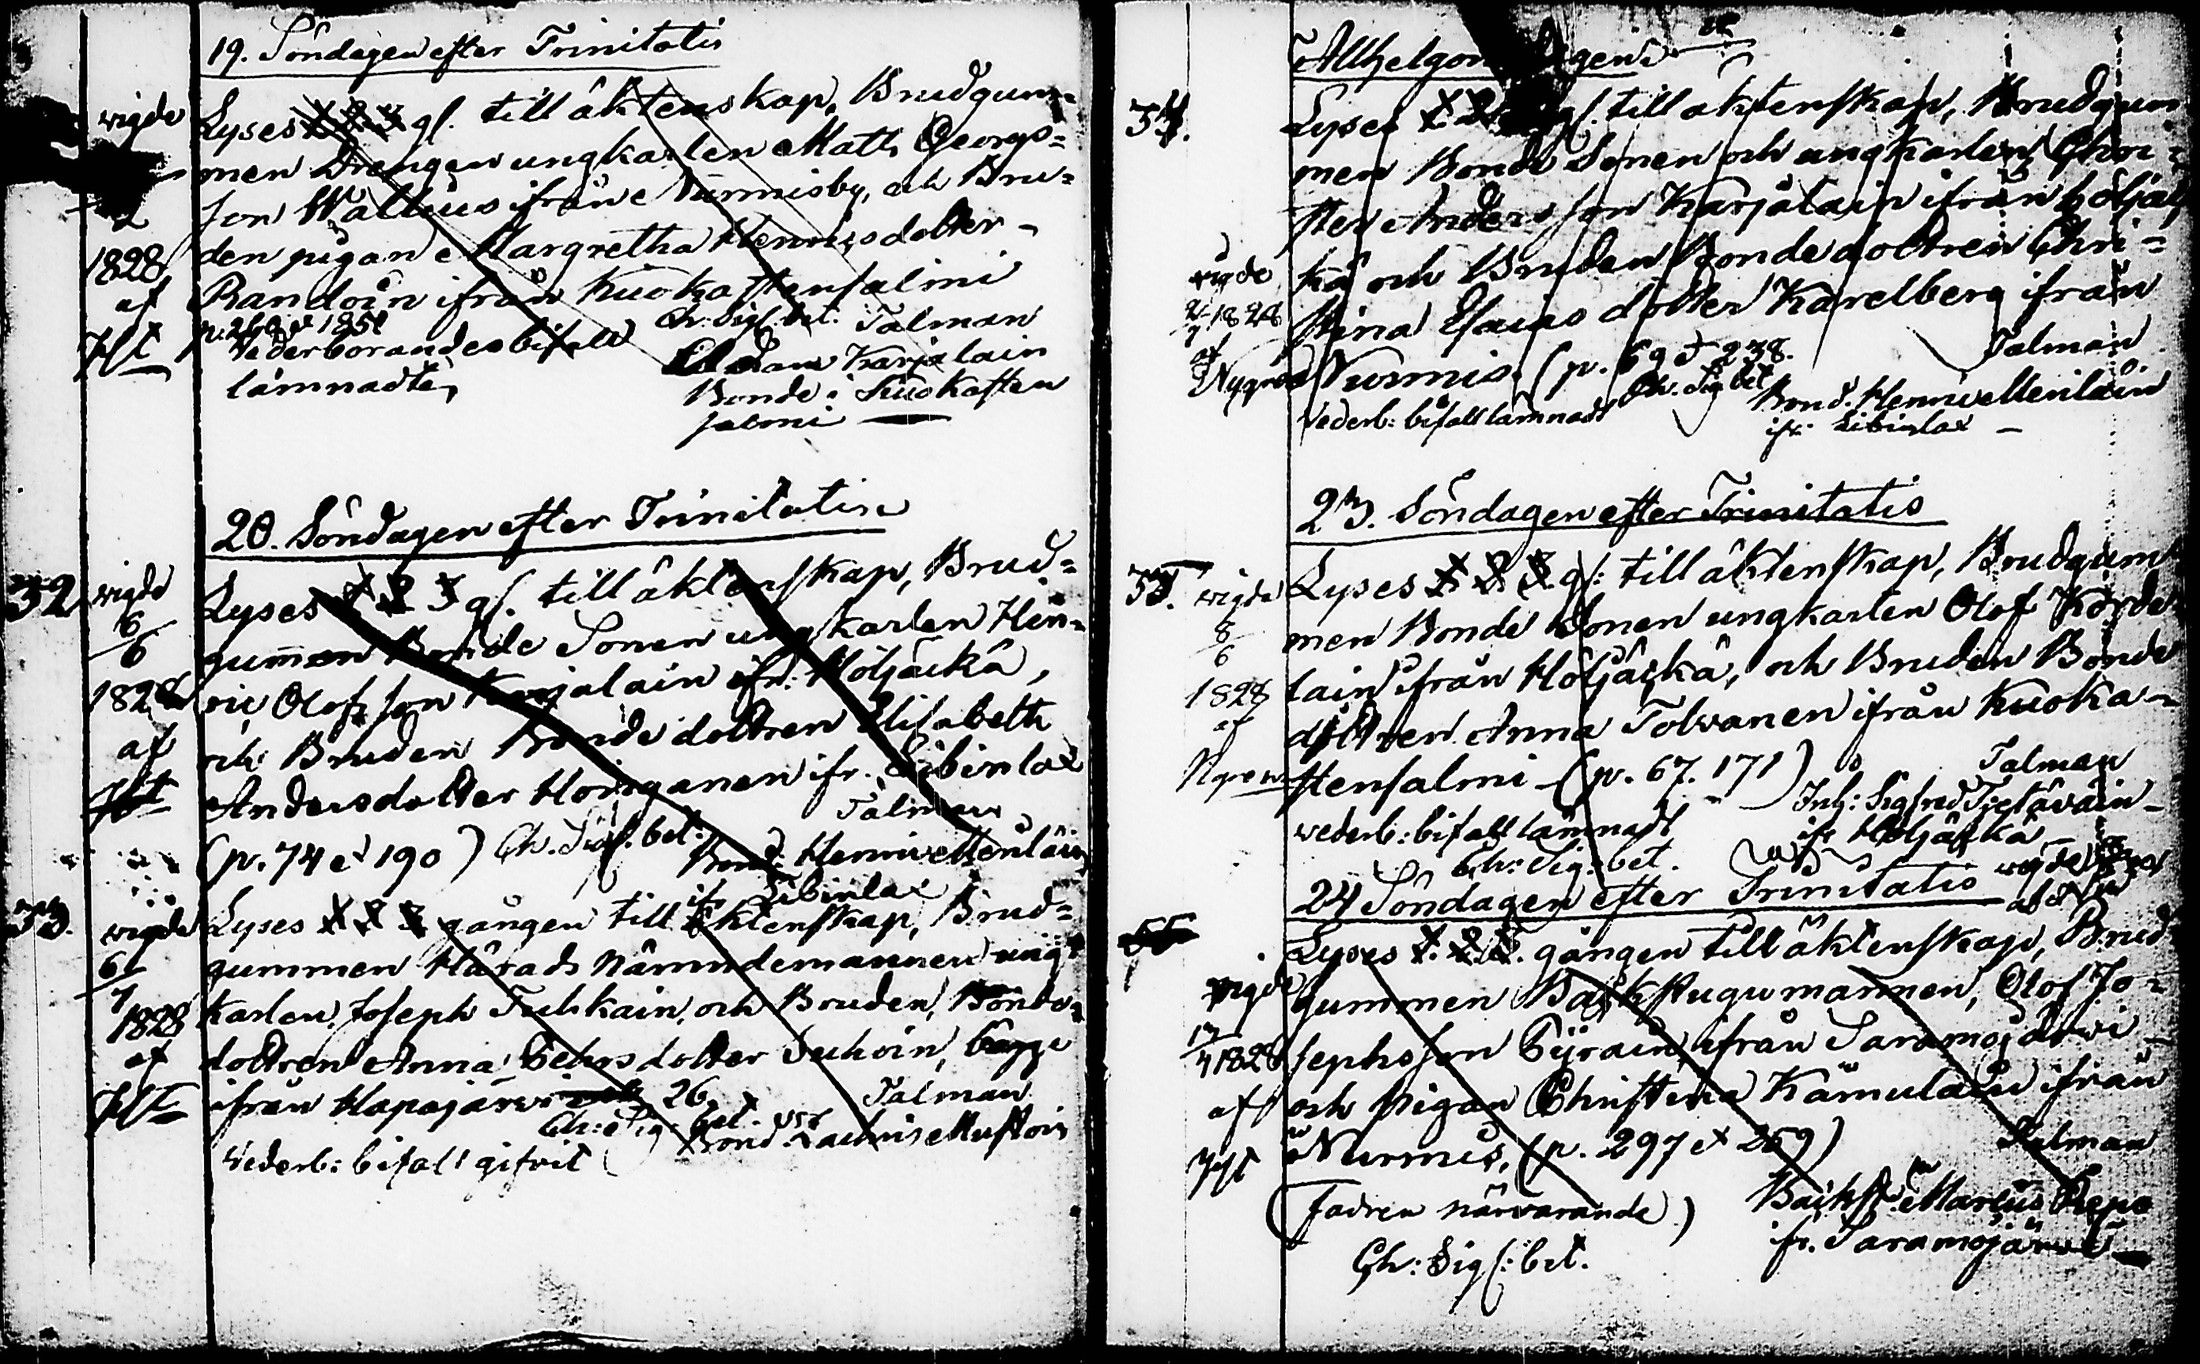 19. Söndagen efter Trinitatis
wigde
2
1828
af
Lyses 1 2 3 gl. till äktenskap, Brudgum=
men Drengen ungkarlen Math Georgs=
son Wallius ifrån Nurmisby, och Bru=
den pigan Margretha Hennisdotter
Randoin ifrån Kuokastensalmi
p. 268 et 1851
Ch. Sigf. bet. Talman
Vederborandes bifall
lämnadt
Adam Karjalain
Bonde i Kuokasten
salmi
20. Söndagen efter Trinitatis
32
wigde
6/6
1828
af
Lyses 1 2 3 gl. till äktenskap, Brud=
gummen Bonde Sonen ungkarlen Hen=
ric Olofsson Karjalain ifr. Höljäckä,
och Bruden Bonde dottren Elisabeth
Andersdotter Hoirganen ifr. Libinlax
(p. 74 et 190) Ch. Sigf. bet.
Talman
Bond. Henric Meriläin
ifr Libinlax
33.
wigde
6/7
1828
af
Lyses 1 2 3 gången till äktenskap, Brud=
gummen Härads nämndemannen ung
karlen Joseph Tuhkain, och Bruden, Bonde
dottren Anna Pehrsdotter Juhoin, bägge
ifrån Hapajärvi 26.
Talman
Ch: Sig: bet.
Bond
Vederb: bifall gifvit
Allhelgona dagen
34.
wigde
2/7 1828
af
Nygren
Lyses 1. 2. gl. till äktenskap, Brudgum
men Bonde Sonen och ungkarlen Chri=
ster Andersson Karjalain ifrån höljäc
kä och Bruden Bondedottren Chri=
stina Esaias dotter Karelberg ifrån
Nurmis. (p. 69 et 238.
Ch. Sig bet
Talman
Vederb: bifall lämnadt
Bond. Henric Meriläin
ifr: Libinlax
23. Söndagen efter Trinitatis
35.
wigde
8/6
1828
af
Lyses 1. 2. 3 gl: till äktenskap, Brudgum
men Bonde Sonen ungkarlen Olof Korde
lain ifrån Höljäckä, och Bruden Bonde
dottren Anna Tolvanen ifrån Kuoka=
stensalmi (p. 67. 171)
Talman
Inh: Sigfred
ifr Höljäckä
vederb: bifall lämnadt
Ch: Sig: bet.
24 Söndagen efter Trinitatis
wigde
17/4 1828
af
Lyses 1. 2. 3. gången till äktenskap, Brud
gummen Backstugumannen, Olof Jo=
sephsson Pyrain, ifrån Saramojärwi
och pigan Christina Kämuläin ifrån
Nurmis, (p. 297 et 269)
Talman
(Fadren närvarande)
Backst. Marcus Repo
ifr. Saramojärwi
Ch: Sigf: bet.